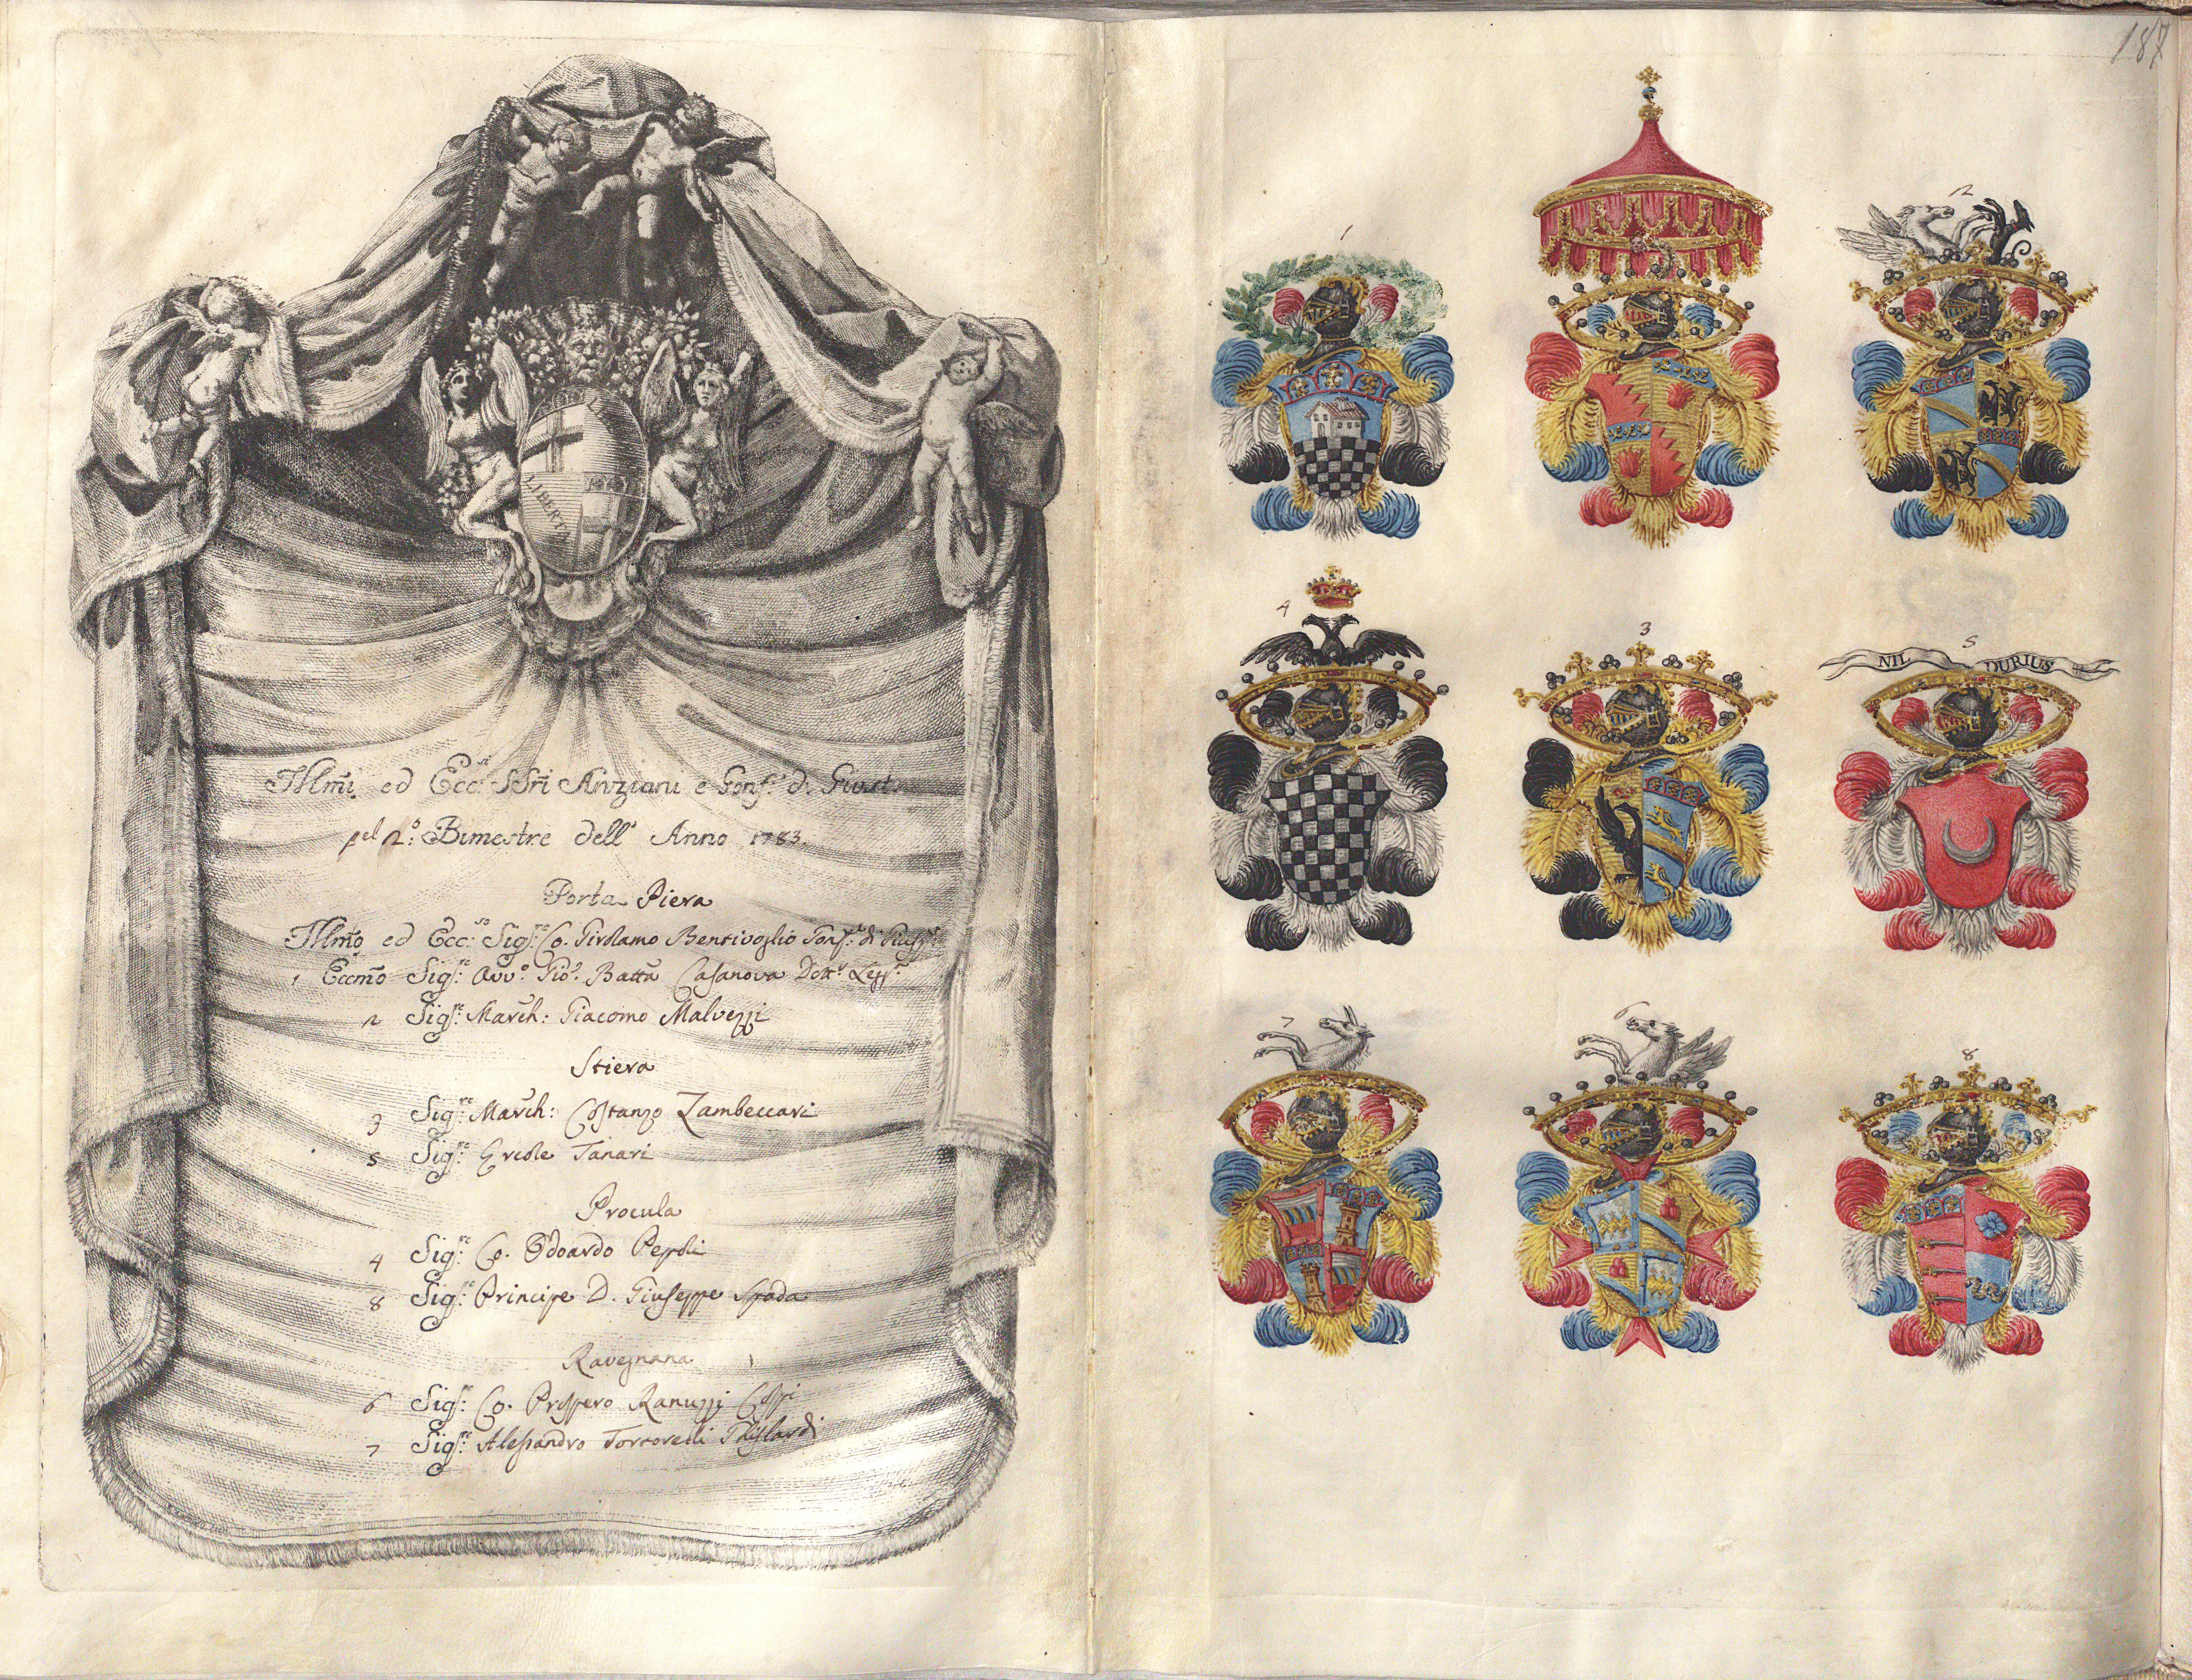 LIBERTA
Illmi ed Ecc.si SSri Anziani e Gonf.e di Giust.
pel 2.o Bimestre dell' Anno 1783.
Porta Piera
Illmo ed Ecc.so Sig.re Co. Girolamo Bentivoglio Gonf.e di
1 Eccmo Sig.re Avv.o Gio. Batta Casanova Dott.r
2 Sig.re March: Giacomo Malvezzi
Stiera
3 Sig.re March: Costanzo Zambeccari
5 Sig.re Ercole Tanari
Procula
4 Sig.re Co. Odoardo Pepoli
8 Sig.re Principe D. Giuseppe Spada
Ravegnana
6 Sig.re Co. Prospero Ranuzzi Cospi
7 Sig.re Alessandro Tortorelli Ghislardi
187
1
2
4
3
5
NIL DURIUS
7
6
8